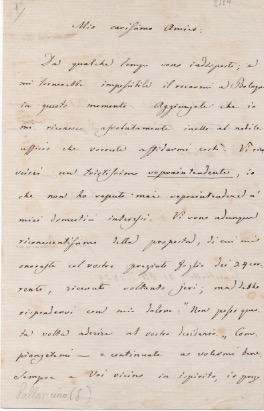 Mio carissimo Amico:
Da qualche tempo sono indisposto; e
mi tornerebbe impossibile il recarmi a Bologna
in questo momento. Aggiungete che io
mi riconosco assolutamente inetto al nobile
ufficio che vorreste affidarmi costì. Vi
un tristissimo sopraintendente, io
che non ho saputo mai sopraintendere a'
miei domestici interessi. Vi sono adunque
riconoscentissimo della proposta, di cui mi
onoraste col vostro pregiato foglio dei 24 cor-
rente, ricevuto soltanto jeri; ma debbo
rispondervi con mio dolore: "Non posso ques-
ta volta aderire al vostro desiderio." Com-
piangetemi — e continuate a volermi bene.
Sempre a Voi vicino in ispirito, io
Pallavicino (G)